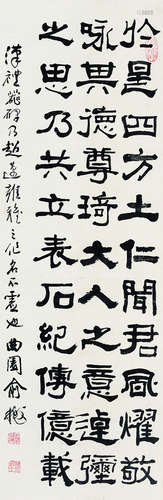 於是四方土仁聞君風燿敬
咏其德尊琦大人之意逴彌
之思乃共立表石紀傳億載
漢禮器碑乃超邁雄強之作名不虛也 曲園俞樾